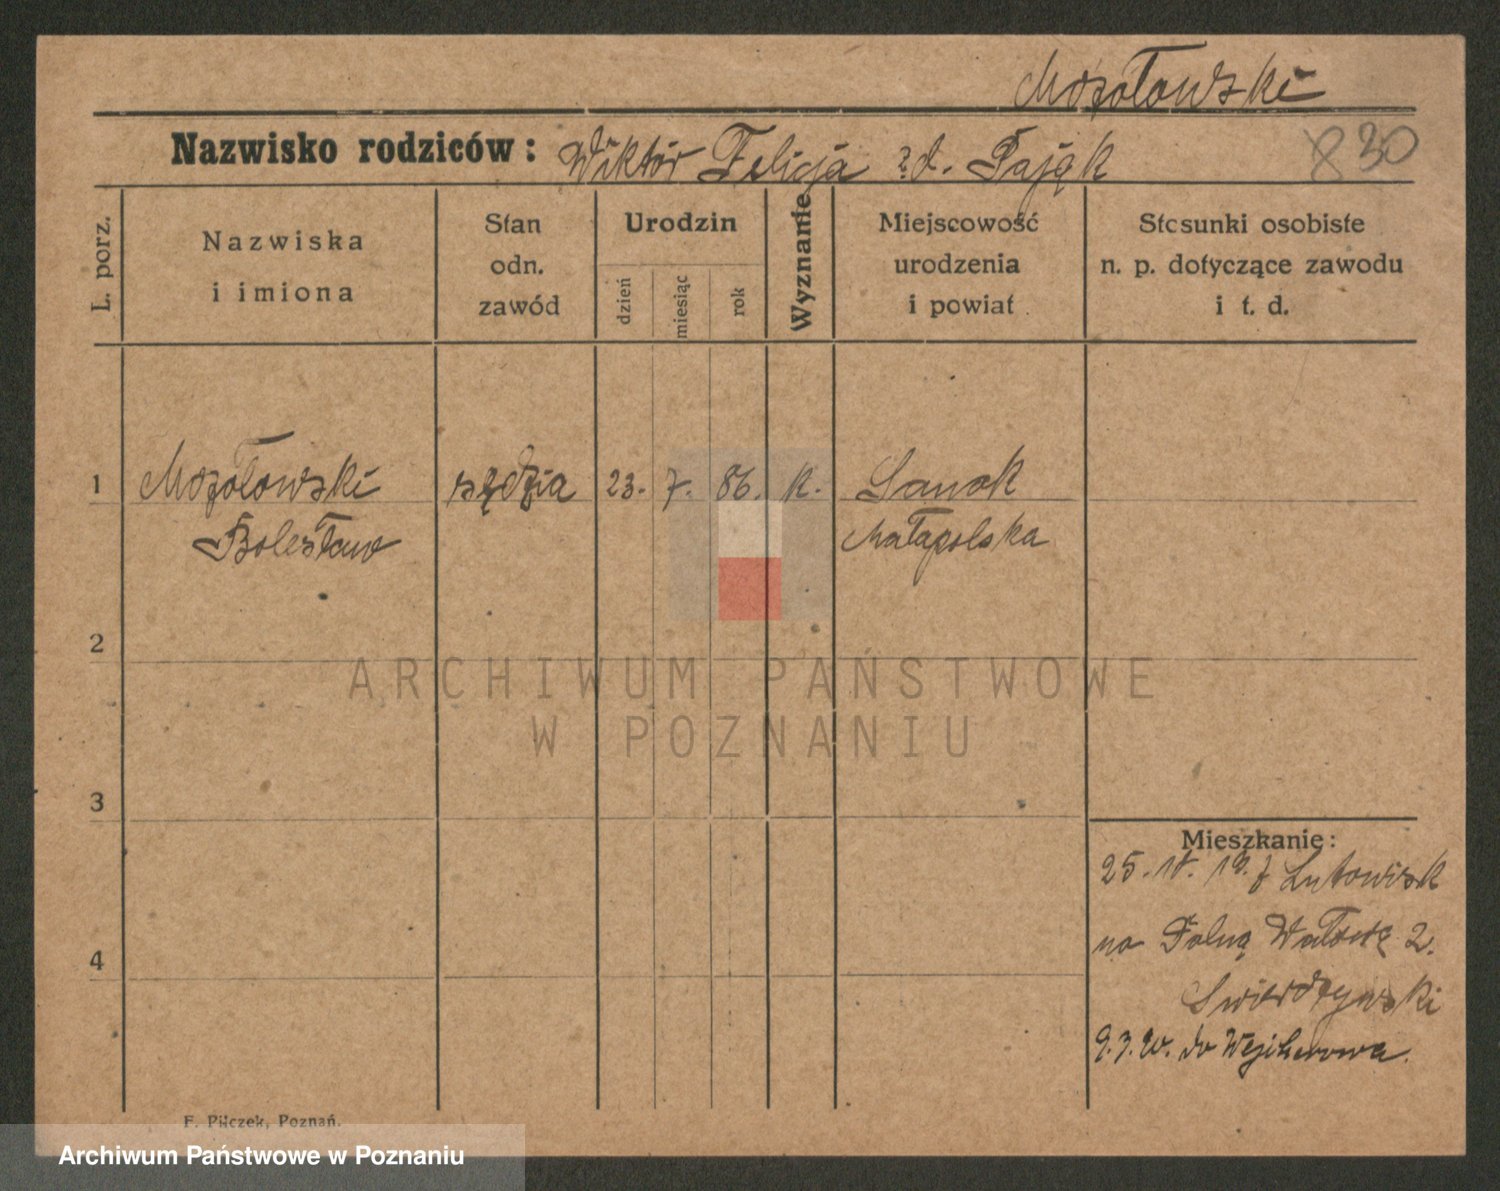 Mozołowski
Nazwisko rodziców: Wiktór Felicja z d. Pająk
830
L. porz.
Nazwiska i imiona
Stan odn. zawód
Urodzin
dzień
miesiąc
rok
Wyznanie
Miejscowość urodzenia i powiat
Stosunki osobiste n. p. dotyczące zawodu i t. d.
1 Mozołowski sędzia 23. 7. 86. k. Sanok
Bolesław Małapolska
2
ARCHIWUM PAŃSTWOWE
W POZNANIU
3
Mieszkanie:
25. 19. z Lutowisk
na Polną 2.
4
9.3.20. do Wejherowa.
F. Pilczek, Poznań.
Archiwum Państwowe w Poznaniu